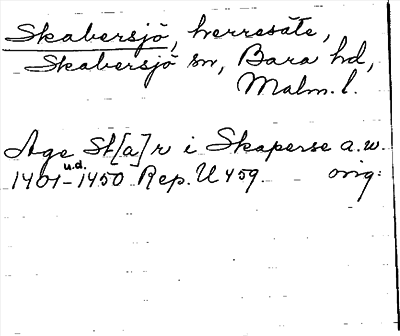 Skabersjö, herresäte,
Skabersjö sn, Bara hd,
Malm. l.
Age St[a]r i Skaperse a.w.
u.d.
1401-1450 Rep. II 459. orig.